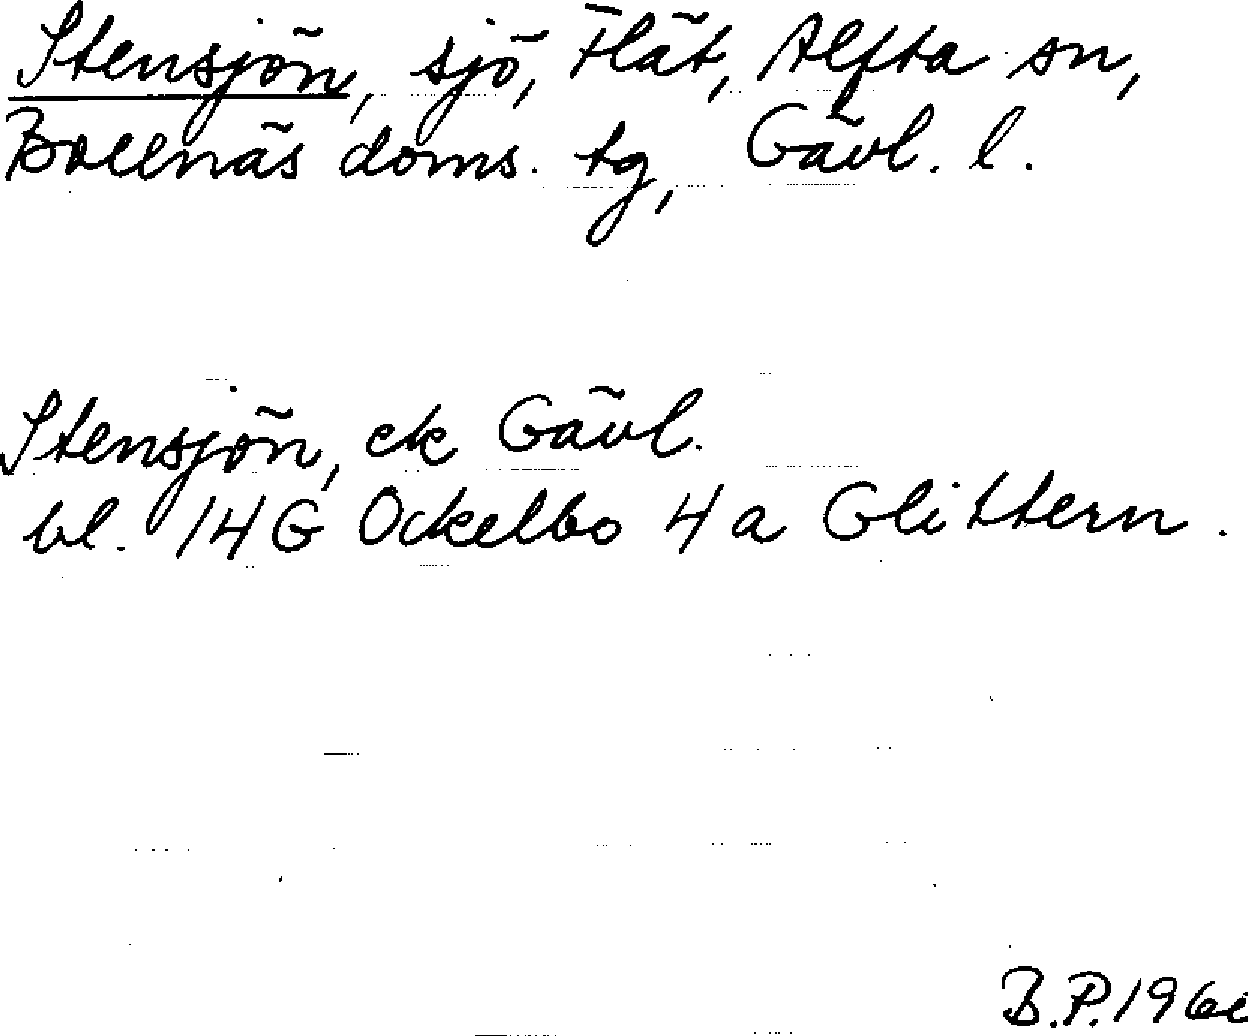 Stensjön, sjö, Flät, Alfta sn,
Bollnäs doms. tg, Gävl. l.
Stensjön, ek Gävl.
bl. 14G Ockelbo 4a Glittern.
B.P.